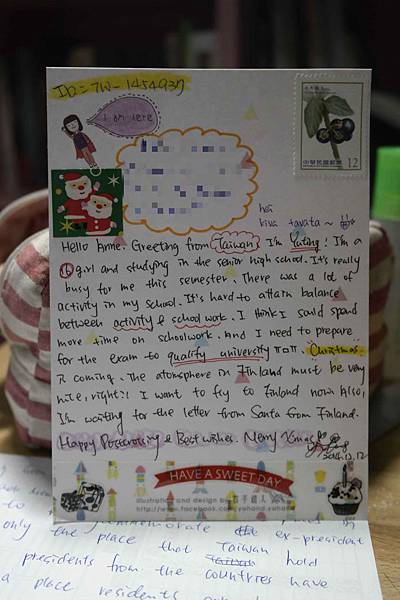 ID = TW-1454937
I am Here
中華民國郵票
12
hei
kiva tavata~
Hello Anne. Greeting from Taiwan. I'm Yuting! I'm a
16 girl and studying in the senior high school. It's really
busy for me this semester. There was a lot of
activity in my school. It's hard to attain balance
between activity & school work. I think I sould spend
more time on schoolwork. And I need to prepare
for the exam to qualify university TT^TT. Christmas
is coming. The atomsphere in Finland must be very
nice, right?! I want to fly to Finland now. Also,
I'm waiting for the letter from Santa from Finland.
Happy Postcrossing & Best wishes. Merry Xmas
2012.12.12
HAVE A SWEET DAY
illustration and design by
http://www.facebook.com/
only the place that Taiwan hold
presidents from the countries have
a place residents